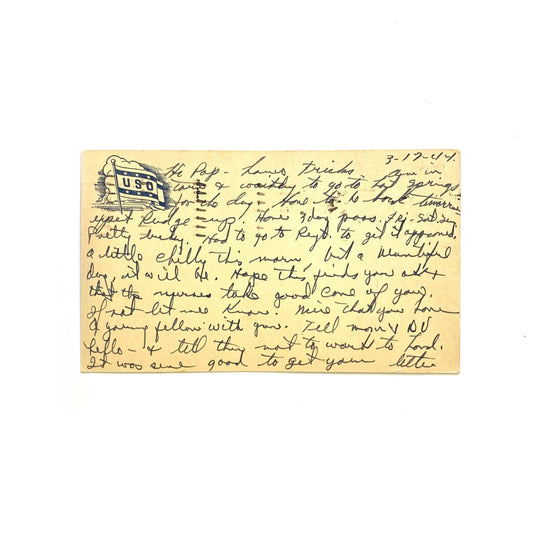 3-17-44.
USO
Hi Pop - how's tricks. Am in
town & waiting to go to Hot Springs
for the day. Have to be back tomorrow
expect Rudge up. Have 3 day pass. Fri-Sat-Sun
Pretty lucky. Had to go to Regt. to get it approved.
a little chilly this morn, but a beautiful
day, it will be. Hope this finds you ok &
that the nurses take good care of you.
If not let me know. Nice that you have
a young fellow with you. Tell mom & DU
hello - & tell them not to work to hard.
It was sure good to get your letter